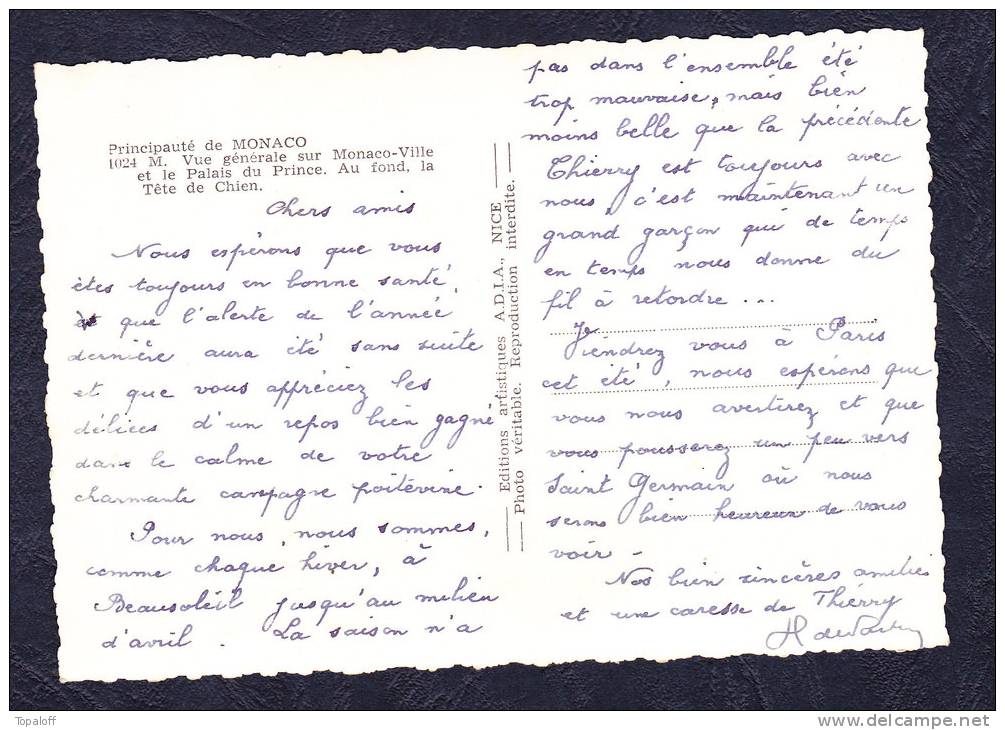 Principauté de MONACO
1024 M. Vue générale sur Monaco-Ville
et le Palais du Prince. Au fond, la
Tête de Chien.
Chers amis
Nous espérons que vous
êtes toujours en bonne santé,
et que l'alerte de l'année
dernière aura été sans suite
et que vous appréciez les
délices d'un repos bien gagné
dans le calme de votre
charmante campagne poitevine.
Pour nous, nous sommes,
comme chaque hiver, à
Beausoleil jusqu'au milieu
d'avril. La saison n'a
Editions artistiques A.D.I.A., NICE
Photo véritable. Reproduction interdite.
pas dans l'ensemble été
trop mauvaise, mais bien
moins belle que la précédente
Thierry est toujours avec
nous, c'est maintenant un
grand garçon qui de temps
en temps nous donne du
fil à retordre...
Viendrez vous à Paris
cet été, nous espérons que
vous nous avertirez et que
vous pousserez un peu vers
Saint Germain où nous
serons bien heureux de vous
voir -
Nos bien sincères amitiés
et une caresse de Thierry
Topaloff
delcampe.net